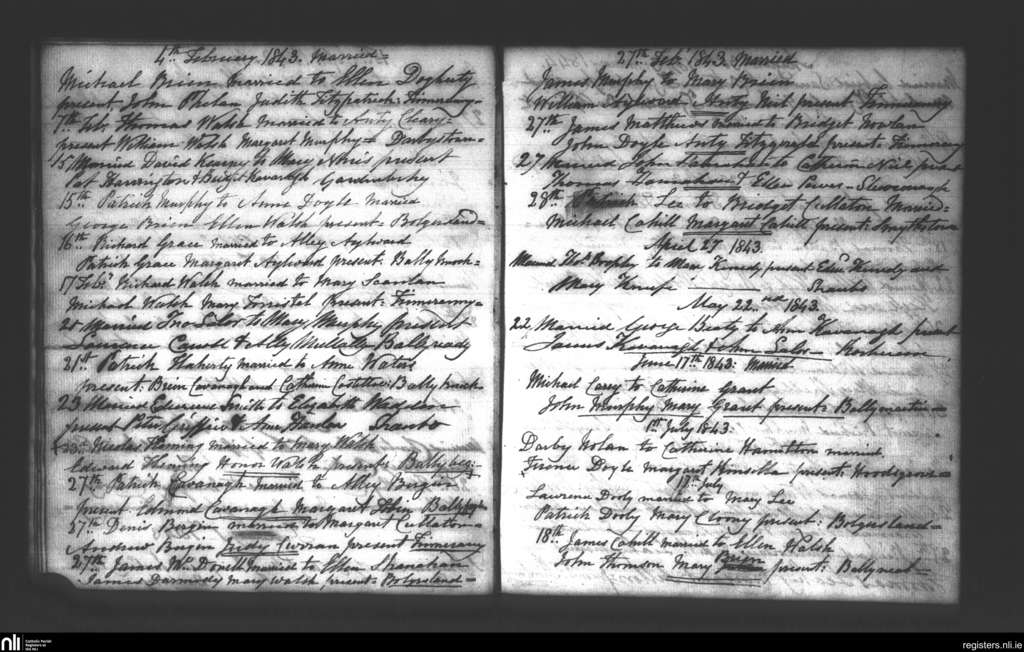 4th February 1843. Married =
Michael Brien married to Ellen Dogherty
present John Phelan Judith Fitzpatrick: Finneromy -
7th Feb: Thomas Walsh Married to Anty Cleary =
present William Walsh Margaret Murphy = Darbystown -
15 Married David Kearney to Mary present
Pat Harrington & Bridgt Kavanagh
15th Patrick Murphy to Anne Doyle married
George Brien Ellen Walsh present = Bolgersland =
16th Richard Grace married to Alley Aylward
Patrick Grace Margaret Aylward present. Bally
17 Feby Richard Walsh married to Mary Scanlan
Michael Walsh Mary Forristel Present:
20 Married Jno Lalor to Mary Murphy present
Laurence & Ballyready
21st Patrick Flaherty married to Anne Waters
present: Brien Cavanagh and Catherine Costelloe: Bally
23 Married Smith to Elizabeth
present Peter Griffin & Ann
Fleming married to Mary Walsh
Edward Fleming Honor Walsh present: Ballybeg:
27th Patrick Cavanagh married to Alley Bergin
present. Edmond Cavanagh Margaret
27th Denis Bergin married to Margaret Cullaton =
Andrew Bergin Judy Curran present
27th James Mc Donell Married to Ellen Shanahan
James Darmody Mary Walsh present = Bolgersland =
27th Feb. 1843 Married
James Murphy to Mary Brien
William Aylward Anty Neil present
27th James Matthews married to Bridget Nowlan
John Doyle Anty Fitzgerald present:
27 Married John to Catherine Neil present
Thomas & Ellen Power -
28th Patrick Lee to Bridget Cullaton Married =
Michael Cahill Margaret Cahill present: Smythstown
April 27 1843
Married Thos to Mary Kenedy, present Edwd Kenedy and
Mary
May 22nd 1843.
22. Married George Beaty to Ann Kavanagh present
James Kavanagh & John Lalor -
June 17th 1843: Married
Michael Casey to Catherine Grant
John Murphy Mary Grant present: Ballymartin =
1st July 1843.
Darby Nolan to Catherine Hamilton married
Doyle Margaret Kinsella present:
17th July
Laurence Dooly married to Mary Lee
Patrick Dooly Mary present: Bolgersland =
18th James Cahill married to Ellen Walsh
John Thomson Mary Brien present: Ballyneal
nli Catholic Parish
Registers at
the NLI
registers.nli.ie